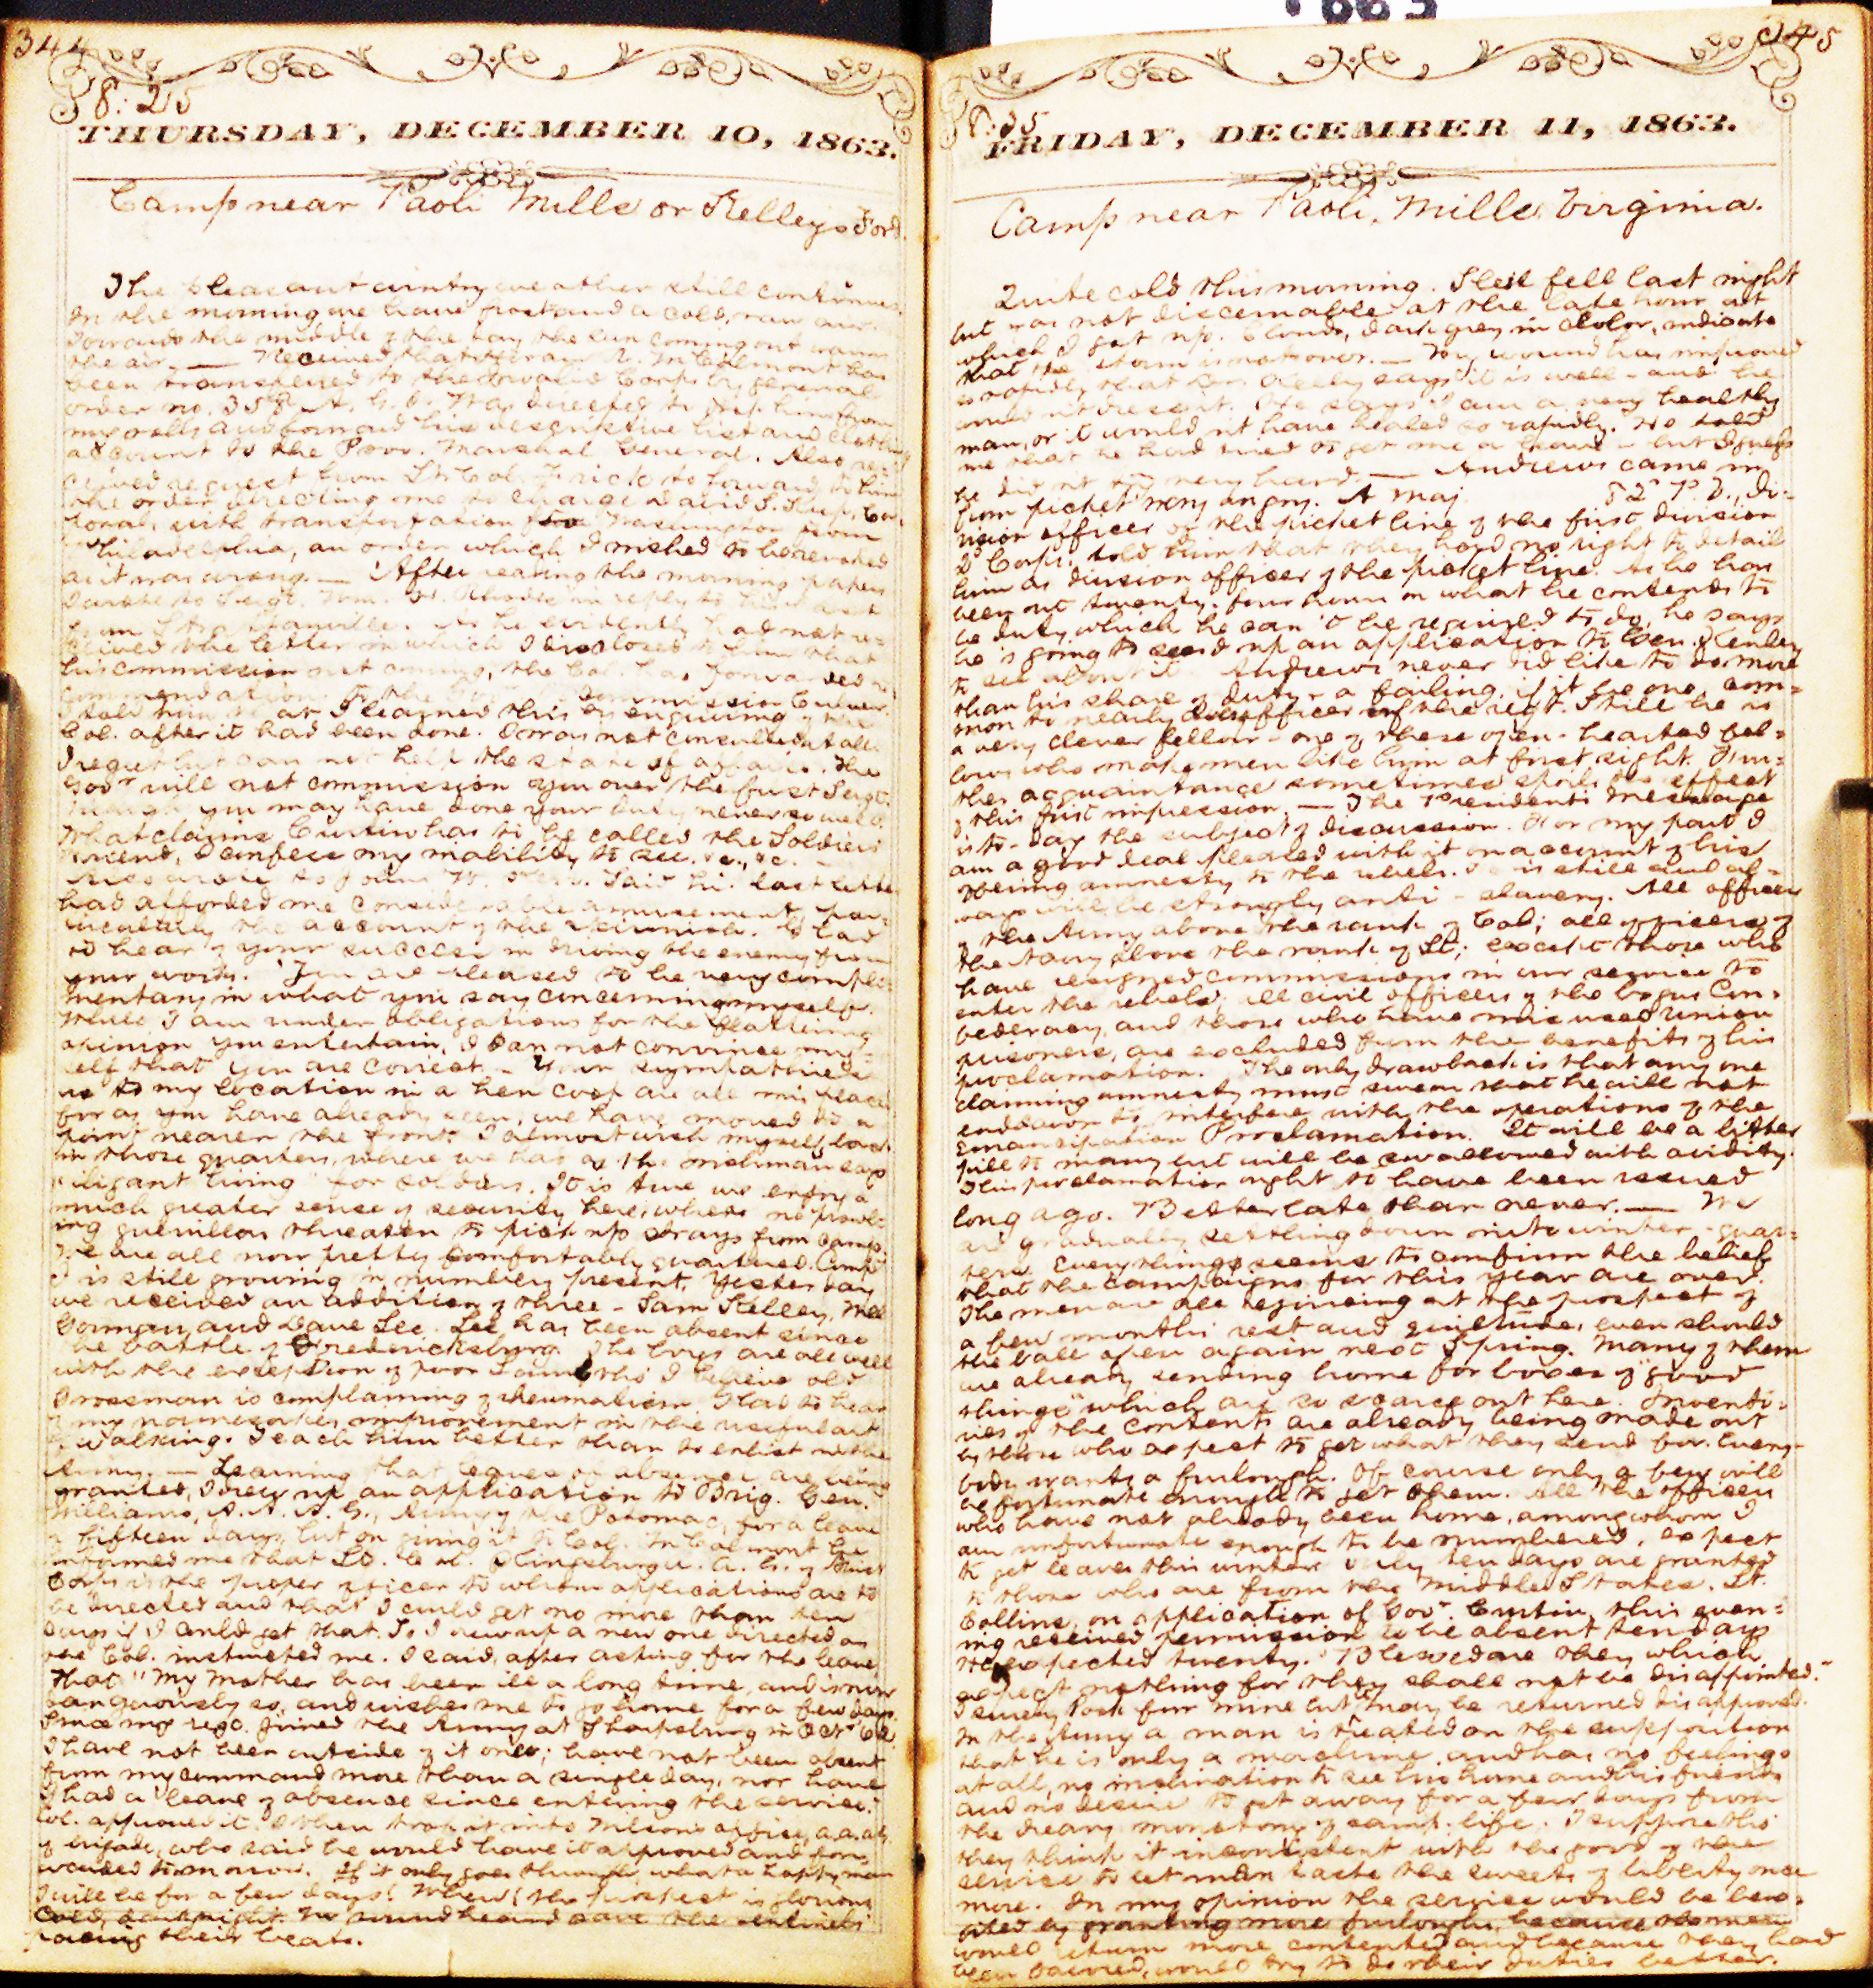 344
8:25
THURSDAY, DECEMBER 10, 1863.
Camp near Paoli Mills or Kelleys Ford.
The pleasant wintry weather still continues.
In the morning we have frost and a cold, raw air.
Towards the middle of the day the sun coming out warms
the air. — Received that been
been transferred to the Invalid Corps by general
order no. 358 A. G. O. Was directed to drop him from
my rolls and forward his descriptive list and clothing
account to the Prov. Marshal General. Also re-
ceived request from Lt. Col. Frick to forward to him
the order directing me to charge David S.
with transportation Washington from
Philadelphia, an order which I wished to be revoked
as it was wrong. — After reading the morning papers
I wrote to Sergt. Wm. H. Rhodes in reply to his last
from As he evidently had not re-
ceived the letter in which I disclosed to him that
his commission not coming, the Col. has forwarded
commendation to the commission
I told him that I learned this by enquiring of the
Col. after it had been done. I was not consulted at all.
I regret but can not help the state of affairs. The
Govr. will not commission you over the first Sergt.
though you may have done your duty never so well.
What claims Curtin has to be called the Soldiers
Friend, I confess my inability to see. &c., &c. —
Also wrote to John W. Said his last letter
had afforded me considerable amusement, par-
ticularly the account of the Glad
to hear of your success in driving the enemy from
your works. You are pleased to be very compli-
mentary in what you say concerning myself.
While I am under obligations for the flattering
opinion you entertain, I can not convince my-
self that you are correct. — Your sympathies
as to my location in a hen coop are all misplaced
for as you have already seen, we have moved to a
point nearer the front. I almost wish myself back
in those quarters, where we had as the Irishman says
"iligant living" for soldiers. It is true we enjoy a
much greater sense of security here, where no prowl-
ing guerillas threaten to pick up strays from camp.
We are all now pretty comfortably quartered. Comp.
I is still growing in numbers present. Yesterday
we received an addition of three — Sam Kelley, Will
Gorman, and Dave Lee. Lee has been absent since
the battle of Fredericksburg. The boys are all well
with the exception of poor I believe old
Grossman is complaining of rheumatism. Glad to hear
of my namesakes improvement in the useful art
of walking. Teach him better than to enlist in the
Army. — Learning that leaves of absence are being
granted, I drew up an application to Brig. Gen.
Williams, A. A. A. G., Army of the Potomac, for a leave
of fifteen days, but on giving it to Col. McCalmont he
informed me that Lt. Col. A. A. G. of First
Corps is the proper officer to whom applications are to
be directed and that I could get no more than ten
days if I could get that. So I drew up a new one directed as
the Col. instructed me. I said, after asking for the leave
that "My Mother has been ill a long time, and is now
dangerously so, and wishes me to go home for a few days.
Since my regt. joined the Army at Sharpsburg in Oct. '62
I have not been outside of it once; have not been absent
from my command more than a single day, nor have
I had a leave of absence since entering the service."
Col. approved it. I then took it into Wilson's office, a.a.a.g.
of brigade, who said he would have it approved and for-
warded tomorrow. If it only goes through, what a happy man
I will be for a few days! Whew! the prospect is glorious
Cold, dark night. No sound heard save the sentinels
pacing their beats.
345
8:35
FRIDAY, DECEMBER 11, 1863.
Camp near Paoli, Mills, Virginia.
Quite cold this morning. Sleet fell last night
but was not discernable at the late hour at
which I got up. Clouds, dark grey in color, indicate
that the storm is not over. — My wound has improved
so rapidly that Dr. Kelly says it is well — and he
would n't dress it. He says I am a very healthy
man, or it would n't have healed so rapidly. He told
me that he had tried to get me a leave — but I guess
he did n't try very hard. — Andrews came in
from picket very angry. A Maj. P. V., Di-
vision officer of the picket line of the first division
Corps, told him that they had no right to detail
him as division officer of the picket line. As he has
been out twenty-four hours on what he contends to
be duty which he can't be required to do, he says
he is going to send up an application to Gen.
to see about it. Andrews never did like to do more
than his share of duty — a failing, if it be one, com-
mon to nearly officer of the regt. Still he is
a very clever fellow — one of these open-hearted fel-
lows who make men like him at first sight. Fur-
ther acquaintance sometimes spoils the effect
of this first impression. — The Presidents Message
is to-day the subject of discussion. For my part I
am a good deal pleased with it on account of his
offering amnesty to the rebels. He is still and al-
ways will be strongly anti-slavery. All officers
of the Army above the rank of Col; all officers of
the Navy above the rank of Lt; except those who
have resigned commissions in our service to
enter the rebels; all civil officers of the bogus Con-
federacy, and those who have misused Union
prisoners, are excluded from the benefits of his
proclamation. The only drawback is that any one
claiming amnesty must swear that he will not
endeavor to interfere with the operations of the
Emancipation Proclamation. It will be a bitter
pill to many but will be swallowed with avidity.
This proclamation ought to have been issued
long ago. Better late than never. — We
are gradually settling down into winter-quar-
ters. Everything seems to confirm the belief
that the campaigns for this year are over.
The men are all rejoicing at the prospect of
a few months rest and quietude, even should
the ball open again next Spring. Many of them
are already sending home for boxes of "good
things" which are so scarce out here. Invento-
ries of the contents are already being made out
by those who expect to get what they send for. Every-
body wants a furlough. Of course only a few will
be fortunate enough to get them. All the officers
who have not already been home, among whom I
am unfortunate enough to be numbered, expect
to get leaves this winter. Only ten days are granted
to those who are from the Middle States. Lt.
Collins, on application of Govr. Curtin, this even-
ing received permission to be absent ten days
He expected twenty. "Blessed are they which
expect nothing for they shall not be disappointed."
I surely look for mine but may be returned disapproved.
In the Army a man is treated on the supposition
that he is only a machine and has no feelings
at all, no inclination to see his home and his friends
and no desire to get away for a few days from
the dreary monotony of camp-life. I suppose this
they think it inconsistent with the good of the
service to let men taste the sweets of liberty once
more. In my opinion the service would be bene-
fited by granting more furloughs, because the men
would return more contented and because they had
been favored, would try to do their duties better.